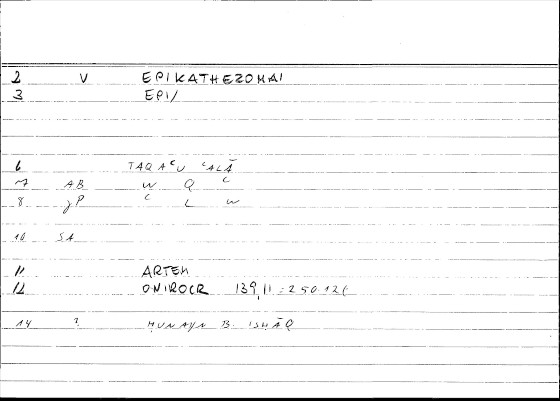 2 V EPIKATHEZOMAI
3 EPI/
6 TAQAᶜU ᶜALĀ
7 AB W Q ᶜ
8 JP ᶜ L W
10 SA
11 ARTEM
12 ONIROCR 139,11 = 250.12
14 ? HUNAYN B. ISHĀQ